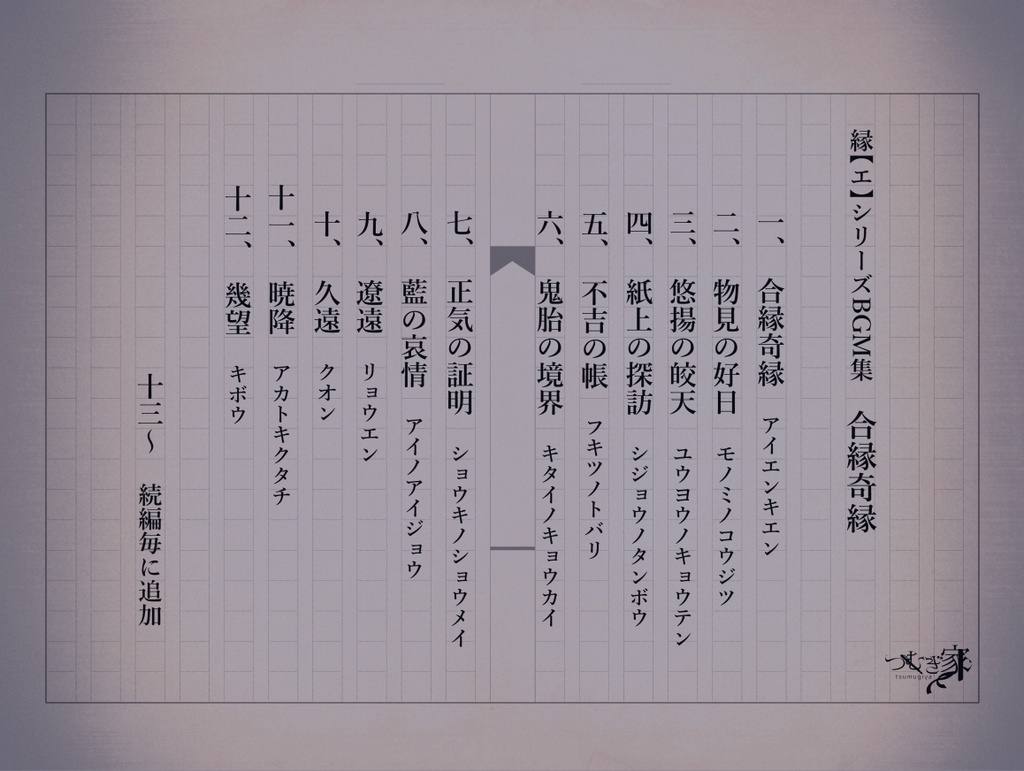 縁【エ】シリーズBGM集　合縁奇縁
一、　合縁奇縁　アイエンキエン
二、　物見の好日　モノミノコウジツ
三、　悠揚の皎天　ユウヨウノキョウテン
四、　紙上の探訪　シジョウノタンボウ
五、　不吉の帳　フキツノトバリ
六、　鬼胎の境界　キタイノキョウカイ
七、　正気の証明　ショウキノショウメイ
八、　藍の哀情　アイノアイジョウ
九、　遼遠　リョウエン
十、　久遠　クオン
十一、　暁降　アカトキクタチ
十二、　幾望　キボウ
十三～　続編毎に追加
つむぎ家
tsumugiya